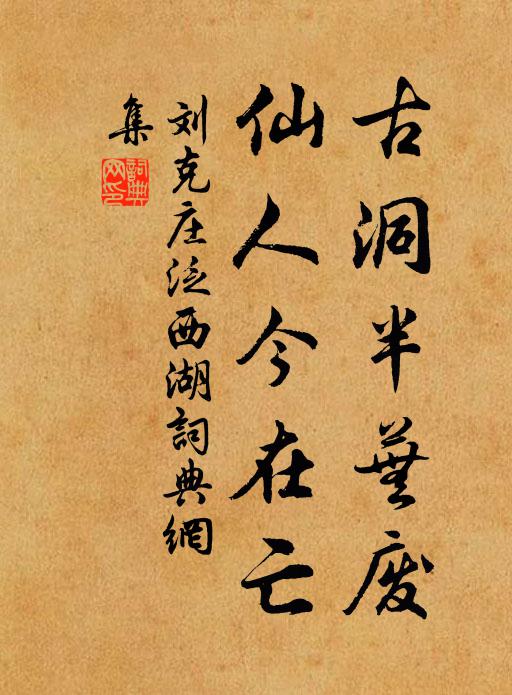 古洞半蕪废
仙人今在亡
刘克庄泛西湖詞典網
集
詞典
网印